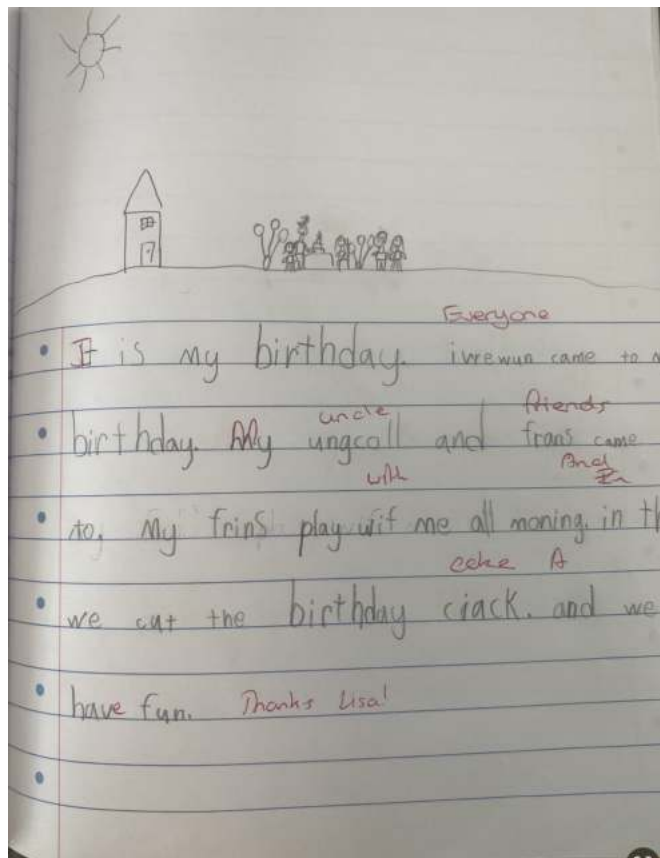 Everyone
It is my birthday. ivrewun came to m
uncle friends
birthday. My ungcall and frans came
with And
to, My frinS play wif me all moning. in th
A
we cut the birthday cjack. and we
have fun. Thanks Lisa!